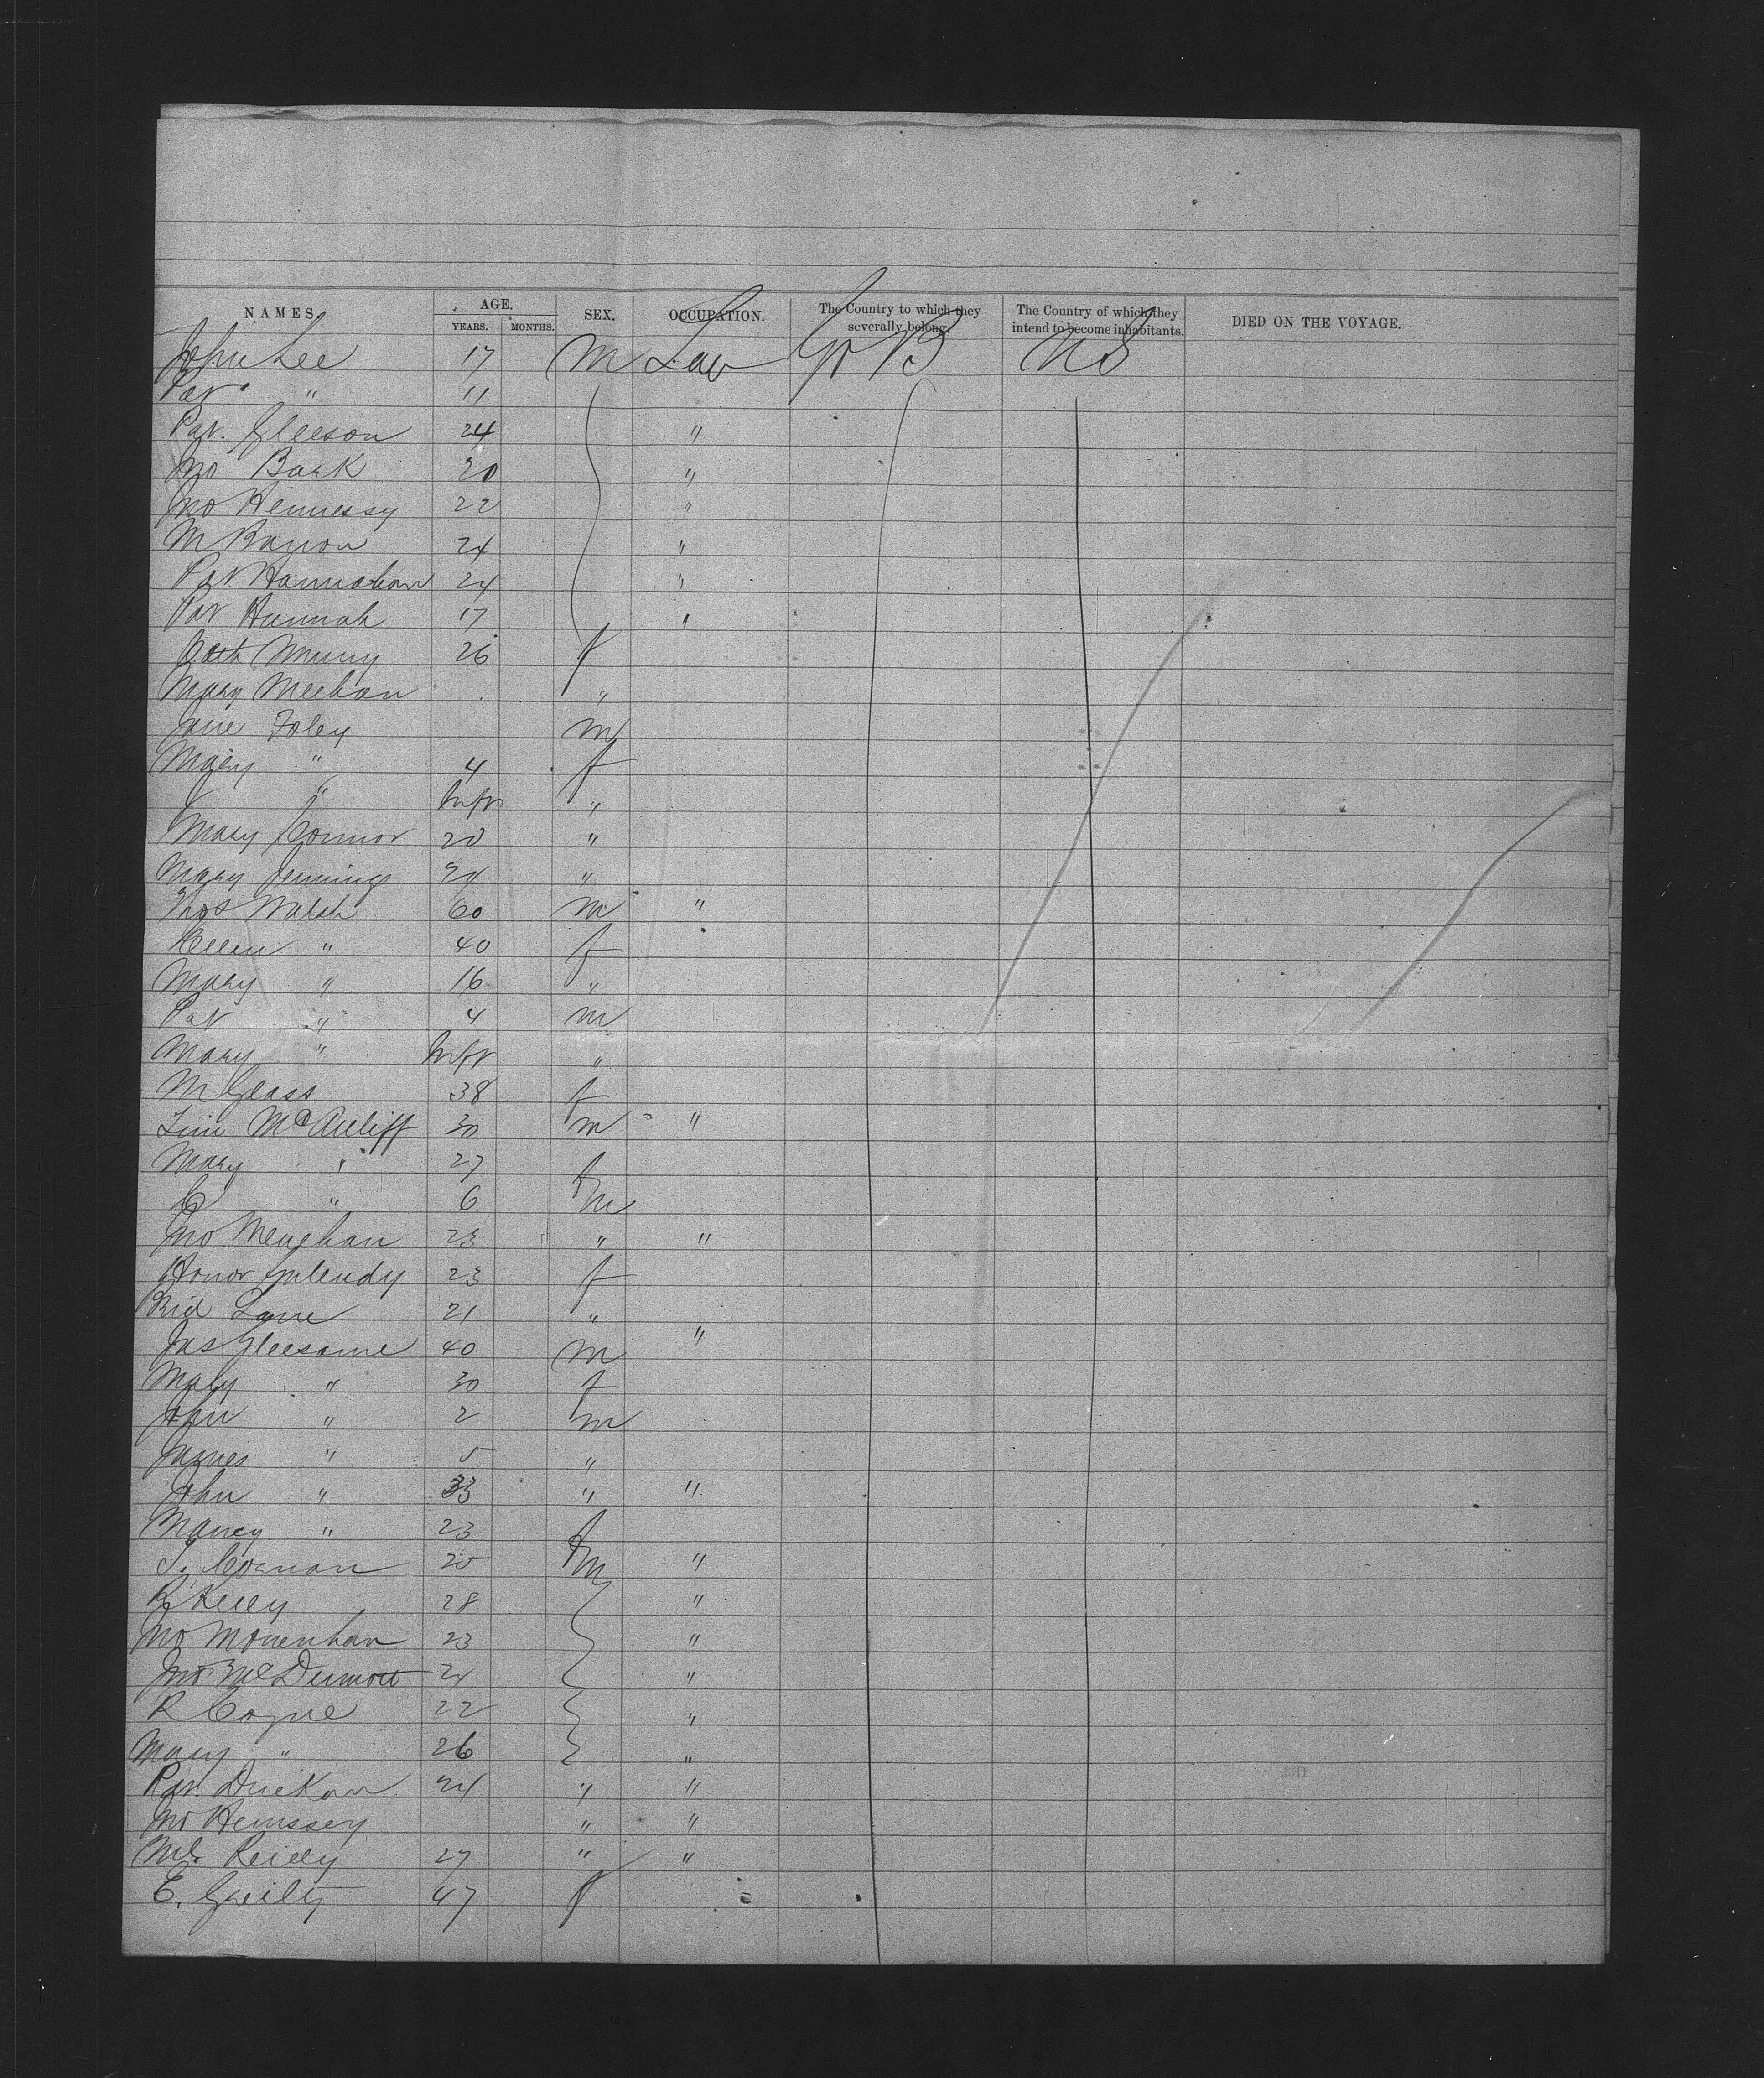 NAMES. AGE. SEX. OCCUPATION. The Country to which they severally belong. The Country of which they intend to become inhabitants. DIED ON THE VOYAGE.
YEARS. MONTHS.
John Lee 17 M Lab Gr B U S
Pat " 11
Pat. Gleeson 24 "
Jno Bark 20 "
Jno Hennessy 22 "
M Barron 24 "
Pat Hannahan 24 "
Pat Hannah 17 "
Cath Murry 26 f
Mary Meehan "
Jane Foley m
Mary " 4 f
" Inft "
Mary Connor 20 "
Mary Jenning 24 "
Thos Walsh 60 m "
Ellen " 40 f
Mary " 16 "
Pat " 4 m
Mary " Inft "
M Glass 38 f
Tim McAuliff 30 m "
Mary " 27 f
C " 6 m
Jno Meughan 23 " "
Honor 23 f
Brid Lane 21 "
Jas Gleesane 40 m "
Mary " 30 f
John " 2 m
James " 5 "
John " 33 " "
Maney " 23 f
T. Cornan 25 m "
R Kelly 28 "
Jno Monenhan 23 "
Jno McDermott 24 "
R Coyne 22 "
Mary " 26 "
Pat. 24 " "
Jno Henssey " "
Ml. Reilly 27 " "
E. 47 f